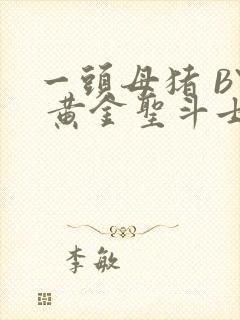 一頭母猪 BY
黄金聖斗士
李敏